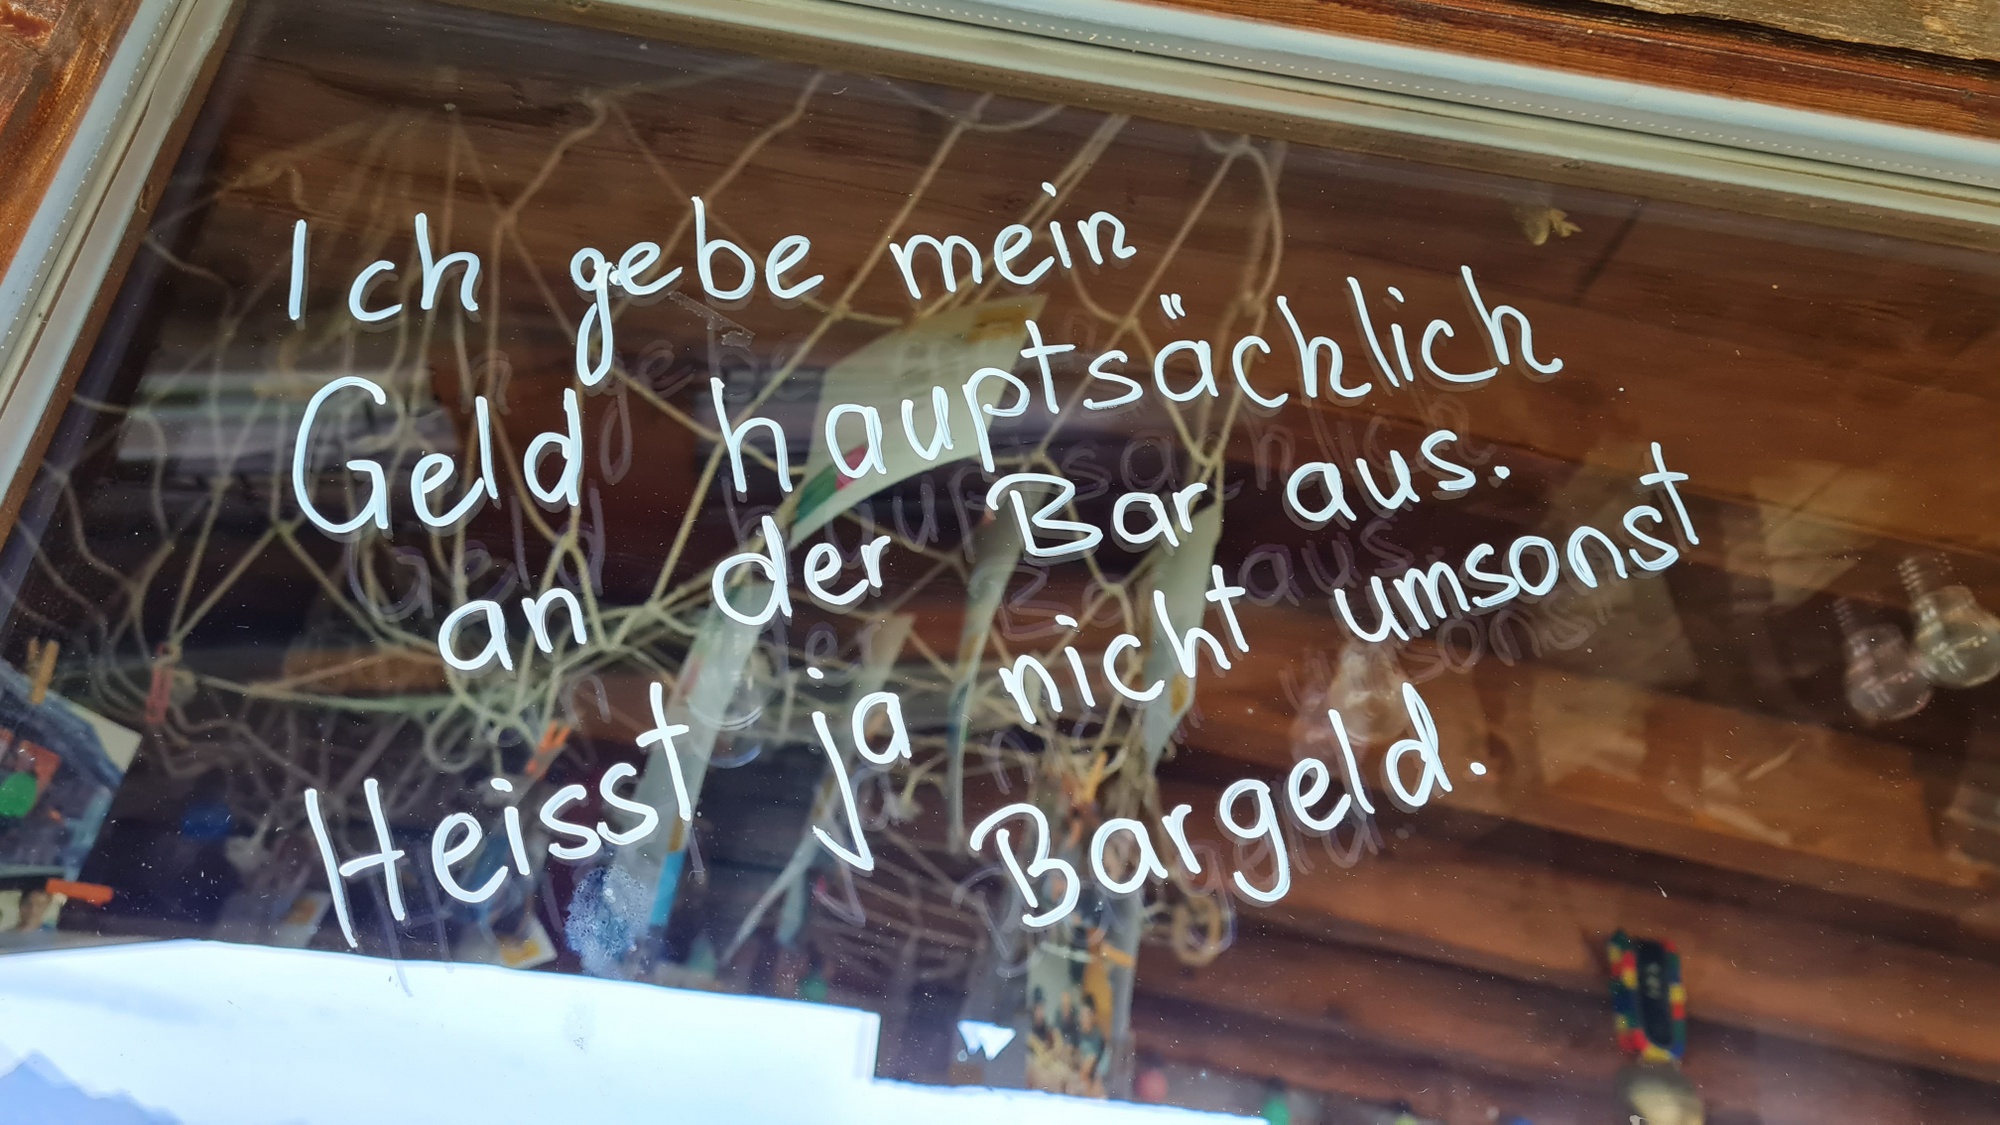 Ich gebe mein
Geld hauptsächlich
an der Bar aus.
Heisst ja nicht umsonst
Bargeld.